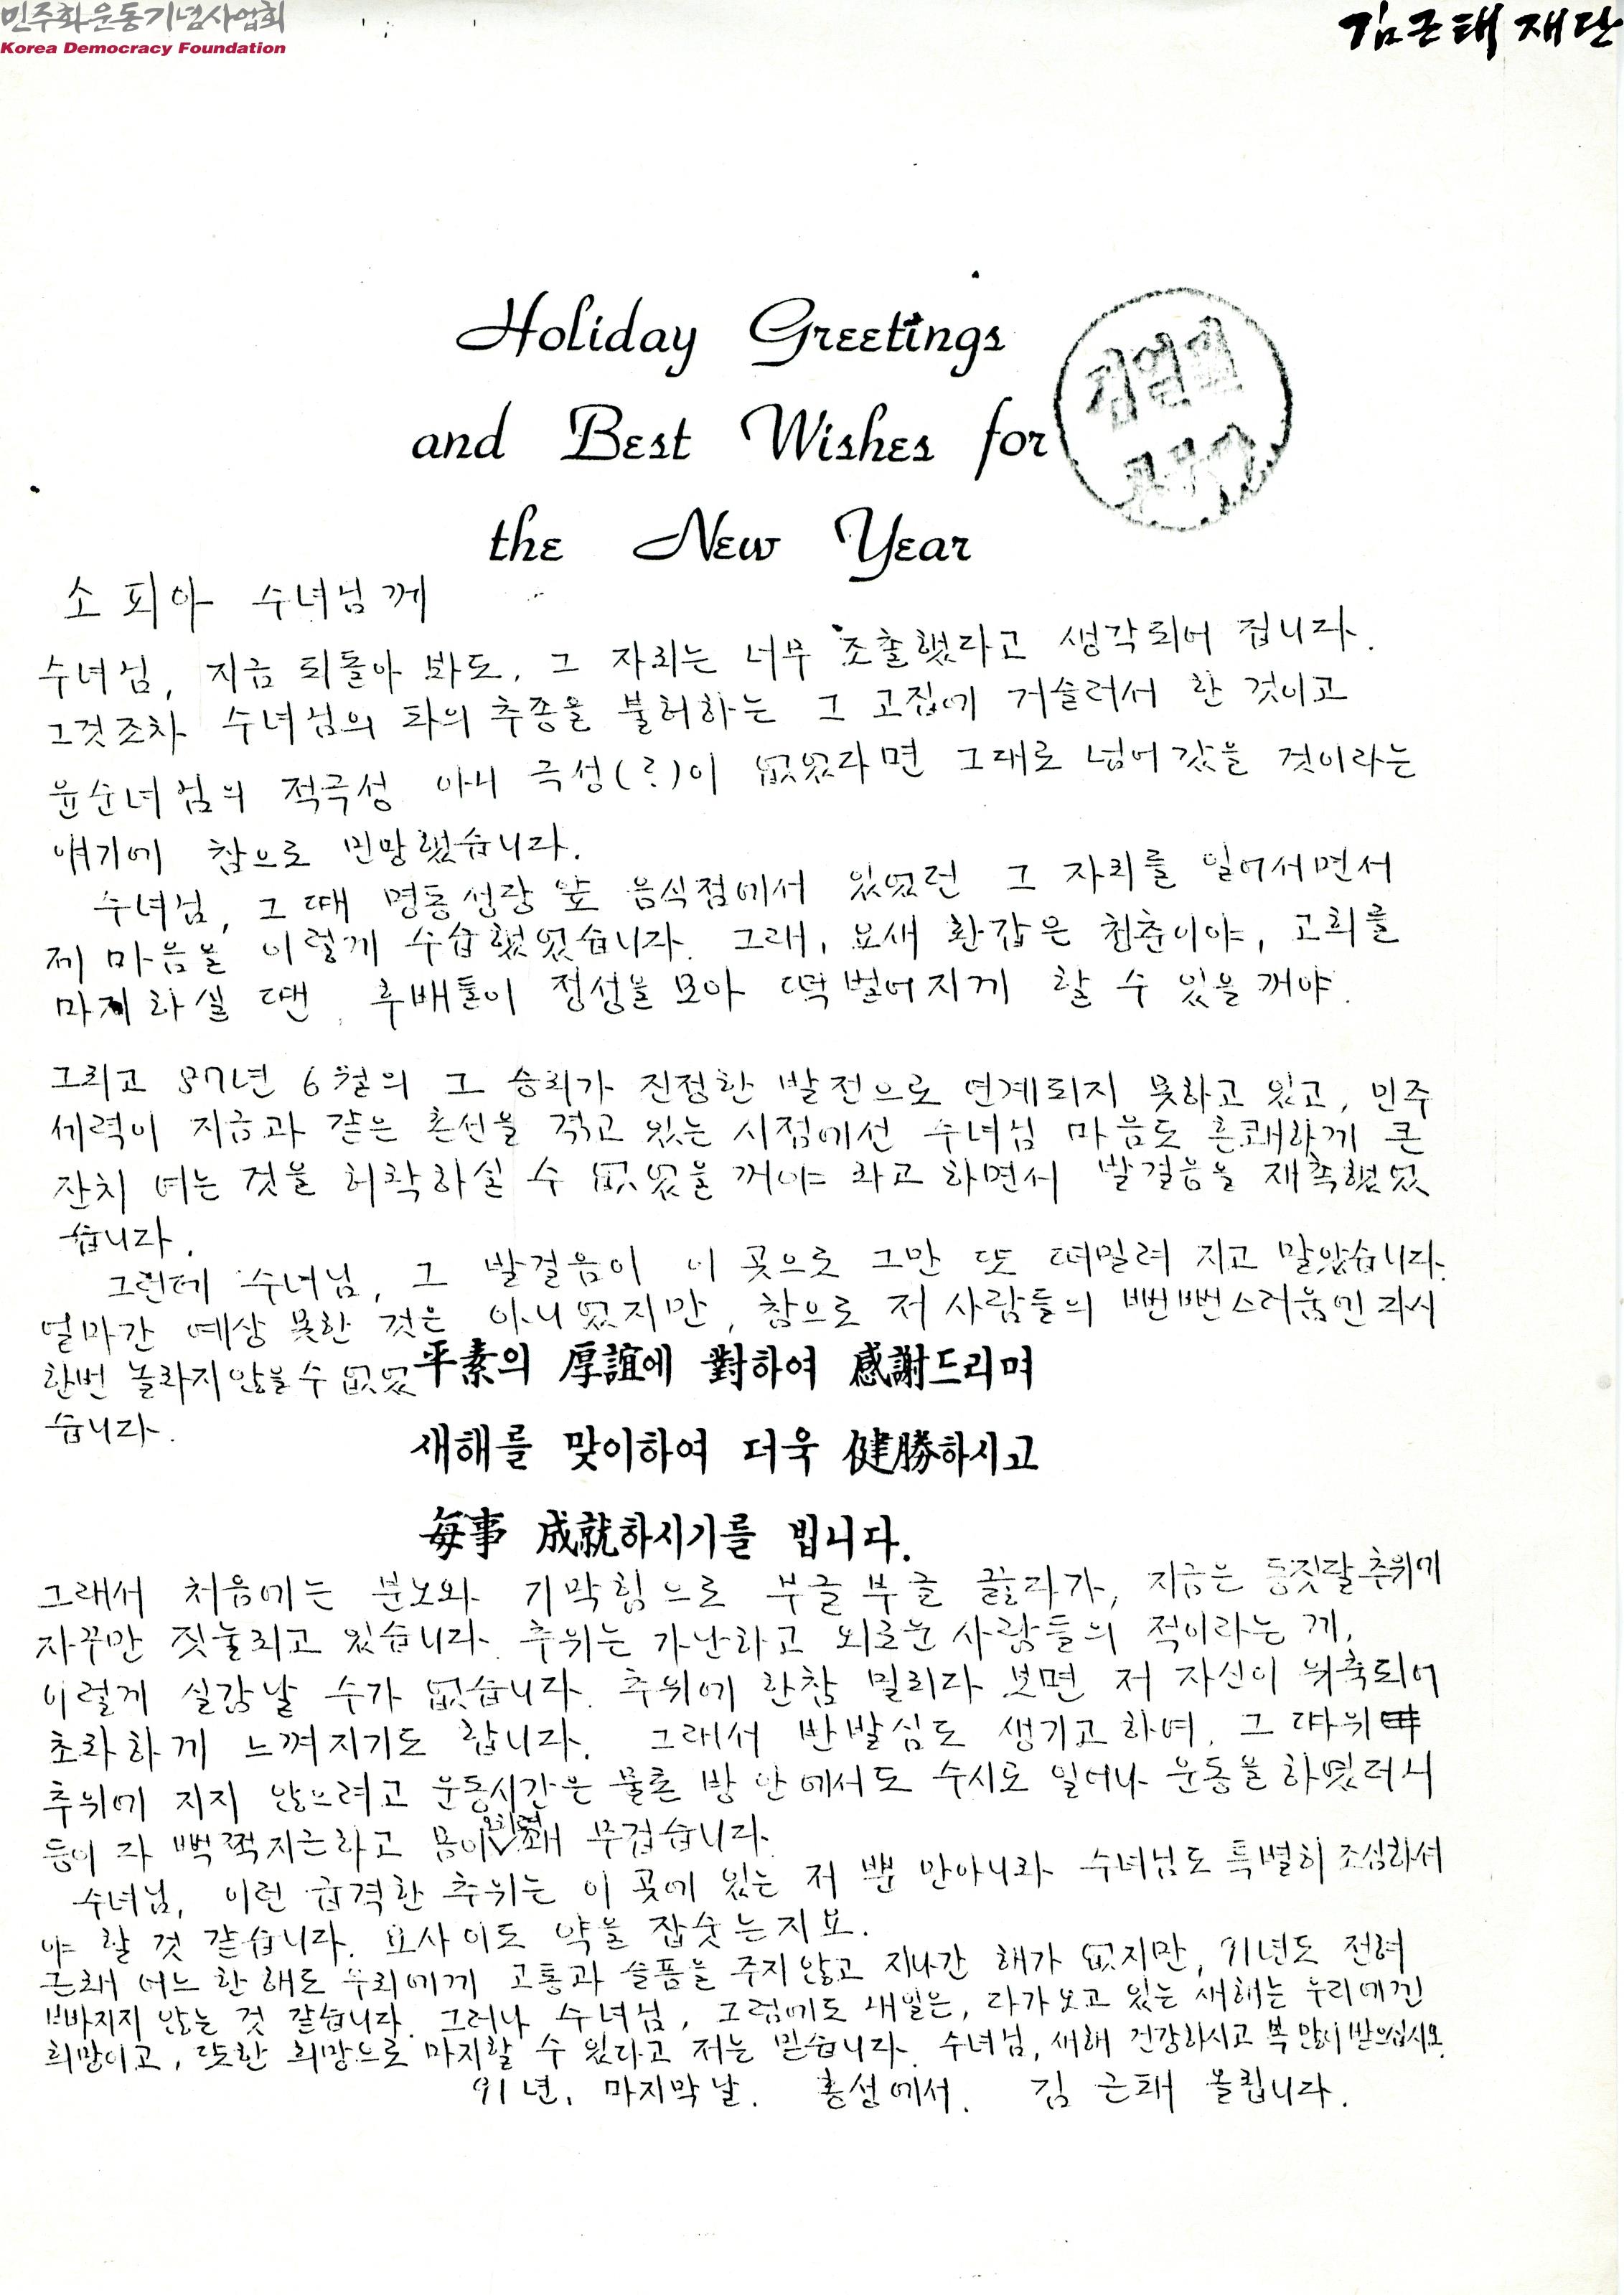 민주화운동기념사업회
Korea Democracy Foundation
김근태재단
Holiday Greetings
and Best Wishes for
the New Year
소피아 수녀님께
수녀님, 지금 되돌아 봐도, 그 자리는 너무 조촐했다고 생각되어 집니다.
그것조차 수녀님의 타의 추종을 불허하는 그 고집에 거슬러서 한 것이고
윤순녀님의 적극성 아니 극성(?)이 없었다면 그대로 넘어갔을 것이라는
얘기에 참으로 민망했습니다.
수녀님, 그때 명동성당 앞 음식점에서 있었던 그 자리를 일어서면서
제 마음을 이렇게 수습했었습니다. 그래, 요새 환갑은 청춘이야, 고희를
마지하실 땐, 후배들이 정성을 모아 떡 벌어지게 할 수 있을꺼야.
그리고 87년 6월의 그 승리가 진정한 발전으로 연계되지 못하고 있고, 민주
세력이 지금과 같은 혼선을 겪고 있는 시점에선 수녀님 마음도 흔쾌하게 큰
잔치 여는 것을 허락하실 수 없었을꺼야 라고 하면서 발걸음을 재촉했었
습니다.
그런데 수녀님, 그 발걸음이 이 곳으로 그만 또 떠밀려 지고 말았습니다.
얼마간 예상 못한 것은 아니었지만, 참으로 저 사람들의 뻔뻔스러움엔 다시
한번 놀라지 않을 수 없었
습니다.
平素의 厚誼에 對하여 感謝드리며
새해를 맞이하여 더욱 健勝하시고
每事 成就하시기를 빕니다.
그래서 처음에는 분노와 기막힘으로 부글부글 끓다가, 지금은 동짓달 추위에
자꾸만 짓눌리고 있습니다. 추위는 가난하고 외로운 사람들의 적이라는 게,
이렇게 실감날 수가 없습니다. 추위에 한참 밀리다 보면 저 자신이 위축되어
초라하게 느껴지기도 합니다. 그래서 반발심도 생기고 하여, 그 따위
추위에 지지 않으려고 운동시간은 물론 방 안에서도 수시로 일어나 운동을 하였더니
등이 다 뻑쩍지근하고 몸이 오히려 꽤 무겁습니다.
수녀님, 이런 급격한 추위는 이 곳에 있는 저 뿐 만아니라 수녀님도 특별히 조심하셔
야 할 것 같습니다. 요사이도 약을 잡숫는지요.
근래 어느 한 해도 우리에게 고통과 슬픔을 주지 않고 지나간 해가 없지만, 91년도 전혀
빠지지 않는 것 같습니다. 그러나 수녀님, 그럼에도 내일은, 다가오고 있는 새해는 우리에겐
희망이고, 또한 희망으로 마지할 수 있다고 저는 믿습니다. 수녀님, 새해 건강하시고 복 많이 받으십시오.
91년, 마지막 날. 홍성에서. 김근태 올립니다.